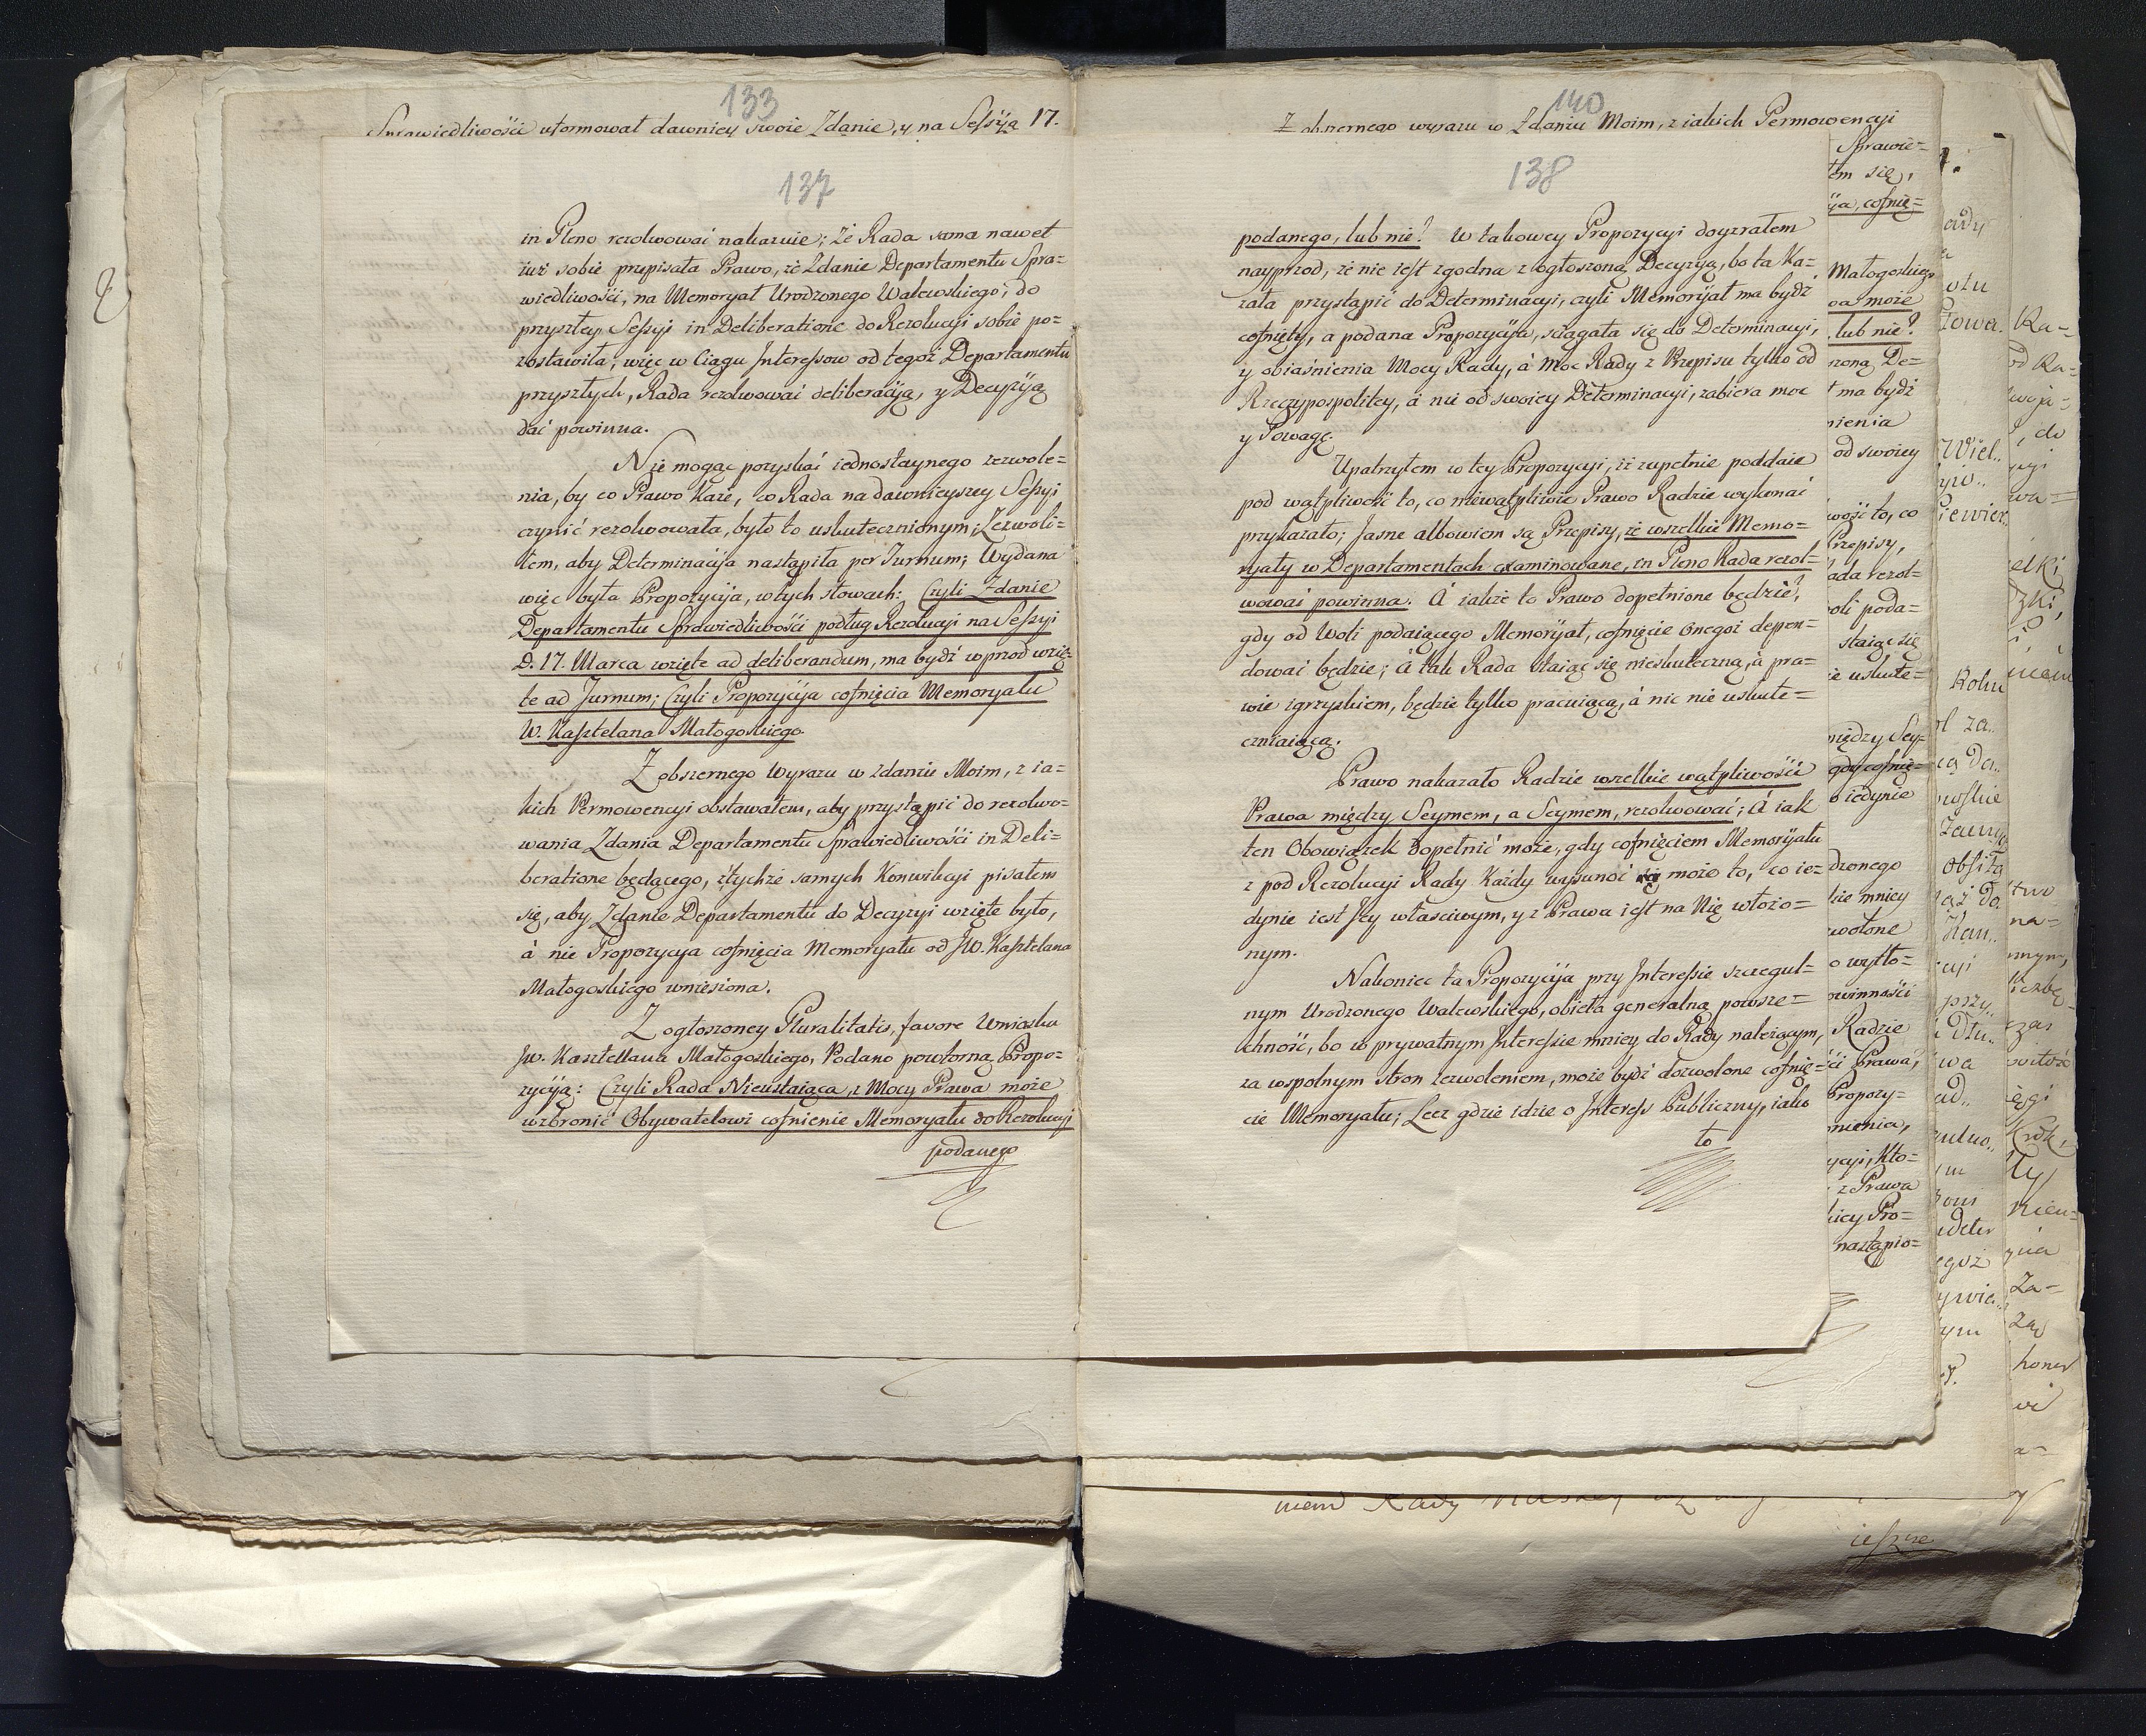 133
Sprawiedliwości uformował dawniey swoie Zdanie, y na Sessÿą 17.
137
in Pleno rezolwować nakazuie; Że Rada sama nawet
iuż sobie przepisała Prawo, że Zdanie Departamentu Spra=
wiedliwości, na Memoryał Urodzonego Walewskiego, do
przyszłey Sessyi in Deliberatione do Rezolucyi sobie po=
zostawiła, więc w Ciągu Interessow od tegoż Departamentu
przyszłych, Rada rezolwować deliberacÿą, y Decyzÿą
dać powinna.
Nie mogąc pozyskać iednostaynego zezwole=
nia, by co Prawo Każe, co Rada na dawnieyszey Sessyi
czynić rezolwowała, było to uskutecznionym; Zezwoli=
łem, aby Determinacÿa nastąpiła per Turnum; Wydana
więc była Propozycÿa, w tych słowach: Czyli Zdanie
Departamentu Sprawiedliwości podług Rezolucyi na Sessyi
D. 17. Marca wzięte ad deliberandum, ma bydź wprzod wzię=
te ad Turnum; Czyli Propozycÿa cofnięcia Memoryału
W. Kasztelana Małogoskiego.
Z obszernego Wyrazu w zdaniu Moim, z ia=
kich Permowencyi obstawałem, aby przystąpić do rezolwo=
wania Zdania Departamentu Sprawiedliwości in Deli=
beratione będącego, z tychże samych Konwikcyi pisałem
się, aby Zdanie Departamentu do Decyzyi wzięte było,
à nie Propozycya cofnięcia Memoryału od JW. Kasztelana
Małogoskiego wniesiona.
Z ogłoszoney Pluralitatis, favore Wniosku
JW. Kasztellana Małogoskiego, Podano powtorną Propo=
zycÿą: Czyli Rada Nieustaiąca, z Mocy Prawa może
wzbronić Obywatelowi cofnienie Memoryału do Rezolucyi
podanego
140
Z obszernego wyrazu w Zdaniu Moim, z iakich Permowencyi
138
podanego, lub nie? W takowey Propozycyi doyzrałem
nayprzod, że nie iest zgodna z ogłoszoną Decyzyą, bo ta Ka=
zała przystąpić do Determinacyi, czyli Memorÿał ma bydź
cofnięty, a podana Propozycÿa, sciągała się do Determinacyi,
y obiaśnienia Mocy Rady, à Moc Rady z Przepisu tylko od
Rzeczypospolitey, á nie od swoiey Determinacyi, zabiera moc
y Powagę.
Upatrzyłem w tey Propozycyi, iż zupełnie poddaie
pod wątpliwość to, co niewątpliwie Prawo Radzie wykonać
przykazało; Jasne albowiem są Przepisy, że wszelkie Memo=
ryały w Departamentach examinowane, in Pleno Rada rezol=
wować powinna. Á iakże to Prawo dopełnione będzie?
gdy od Woli podaiącego Memorÿał, cofnięcie onegoż depen=
dować będzie; Á tak Rada staiąc się nieskuteczną, à pra=
wie igrzyskiem, będzie tylko pracuiącą, à nic nie uskute=
czniaiącą.
Prawo nakazało Radzie wszelkie wątpliwości
Prawa między Seymem, a Seymem, rezolwować; Á iak
ten Obowiązek dopełnić może, gdy cofnięciem Memorÿału
z pod Rezolucyi Rady Każdy wysunoć może to, co ie=
dynie iest Jey własciwym, y z Prawa iest na Nię włożo=
nym.
Nakoniec ta Propozycÿa przy Interessie szczegul=
nym Urodzonego Walewskiego, obięła generalną powsze=
chność, bo w prywatnym Interessie mniey do Rady należącym,
za wspolnym stron zezwoleniem, może bydź dozwolone cofnię=
cie Memoryału; Lecz gdzie idzie o Interess Publiczny, iako
to
Sprawie=
łem się,
ÿa, cofnię=
Małogoskiego
oa może
lub nie?
zoną De=
ma bydź
nienia
od swoiey
wość to, co
Przepisy,
ada rezol=
oli poda=
staiąc się
ie uskute=
między Sey=
gdy cofnię=
o iedynie
dzonego
kie mniey
zwolone
o wysło=
owinności
Radzie
ści Prawa,
Propozy=
nienia,
ycyi, Kto=
z Prawa
kiey Pro=
nastąpio=
ieszcze